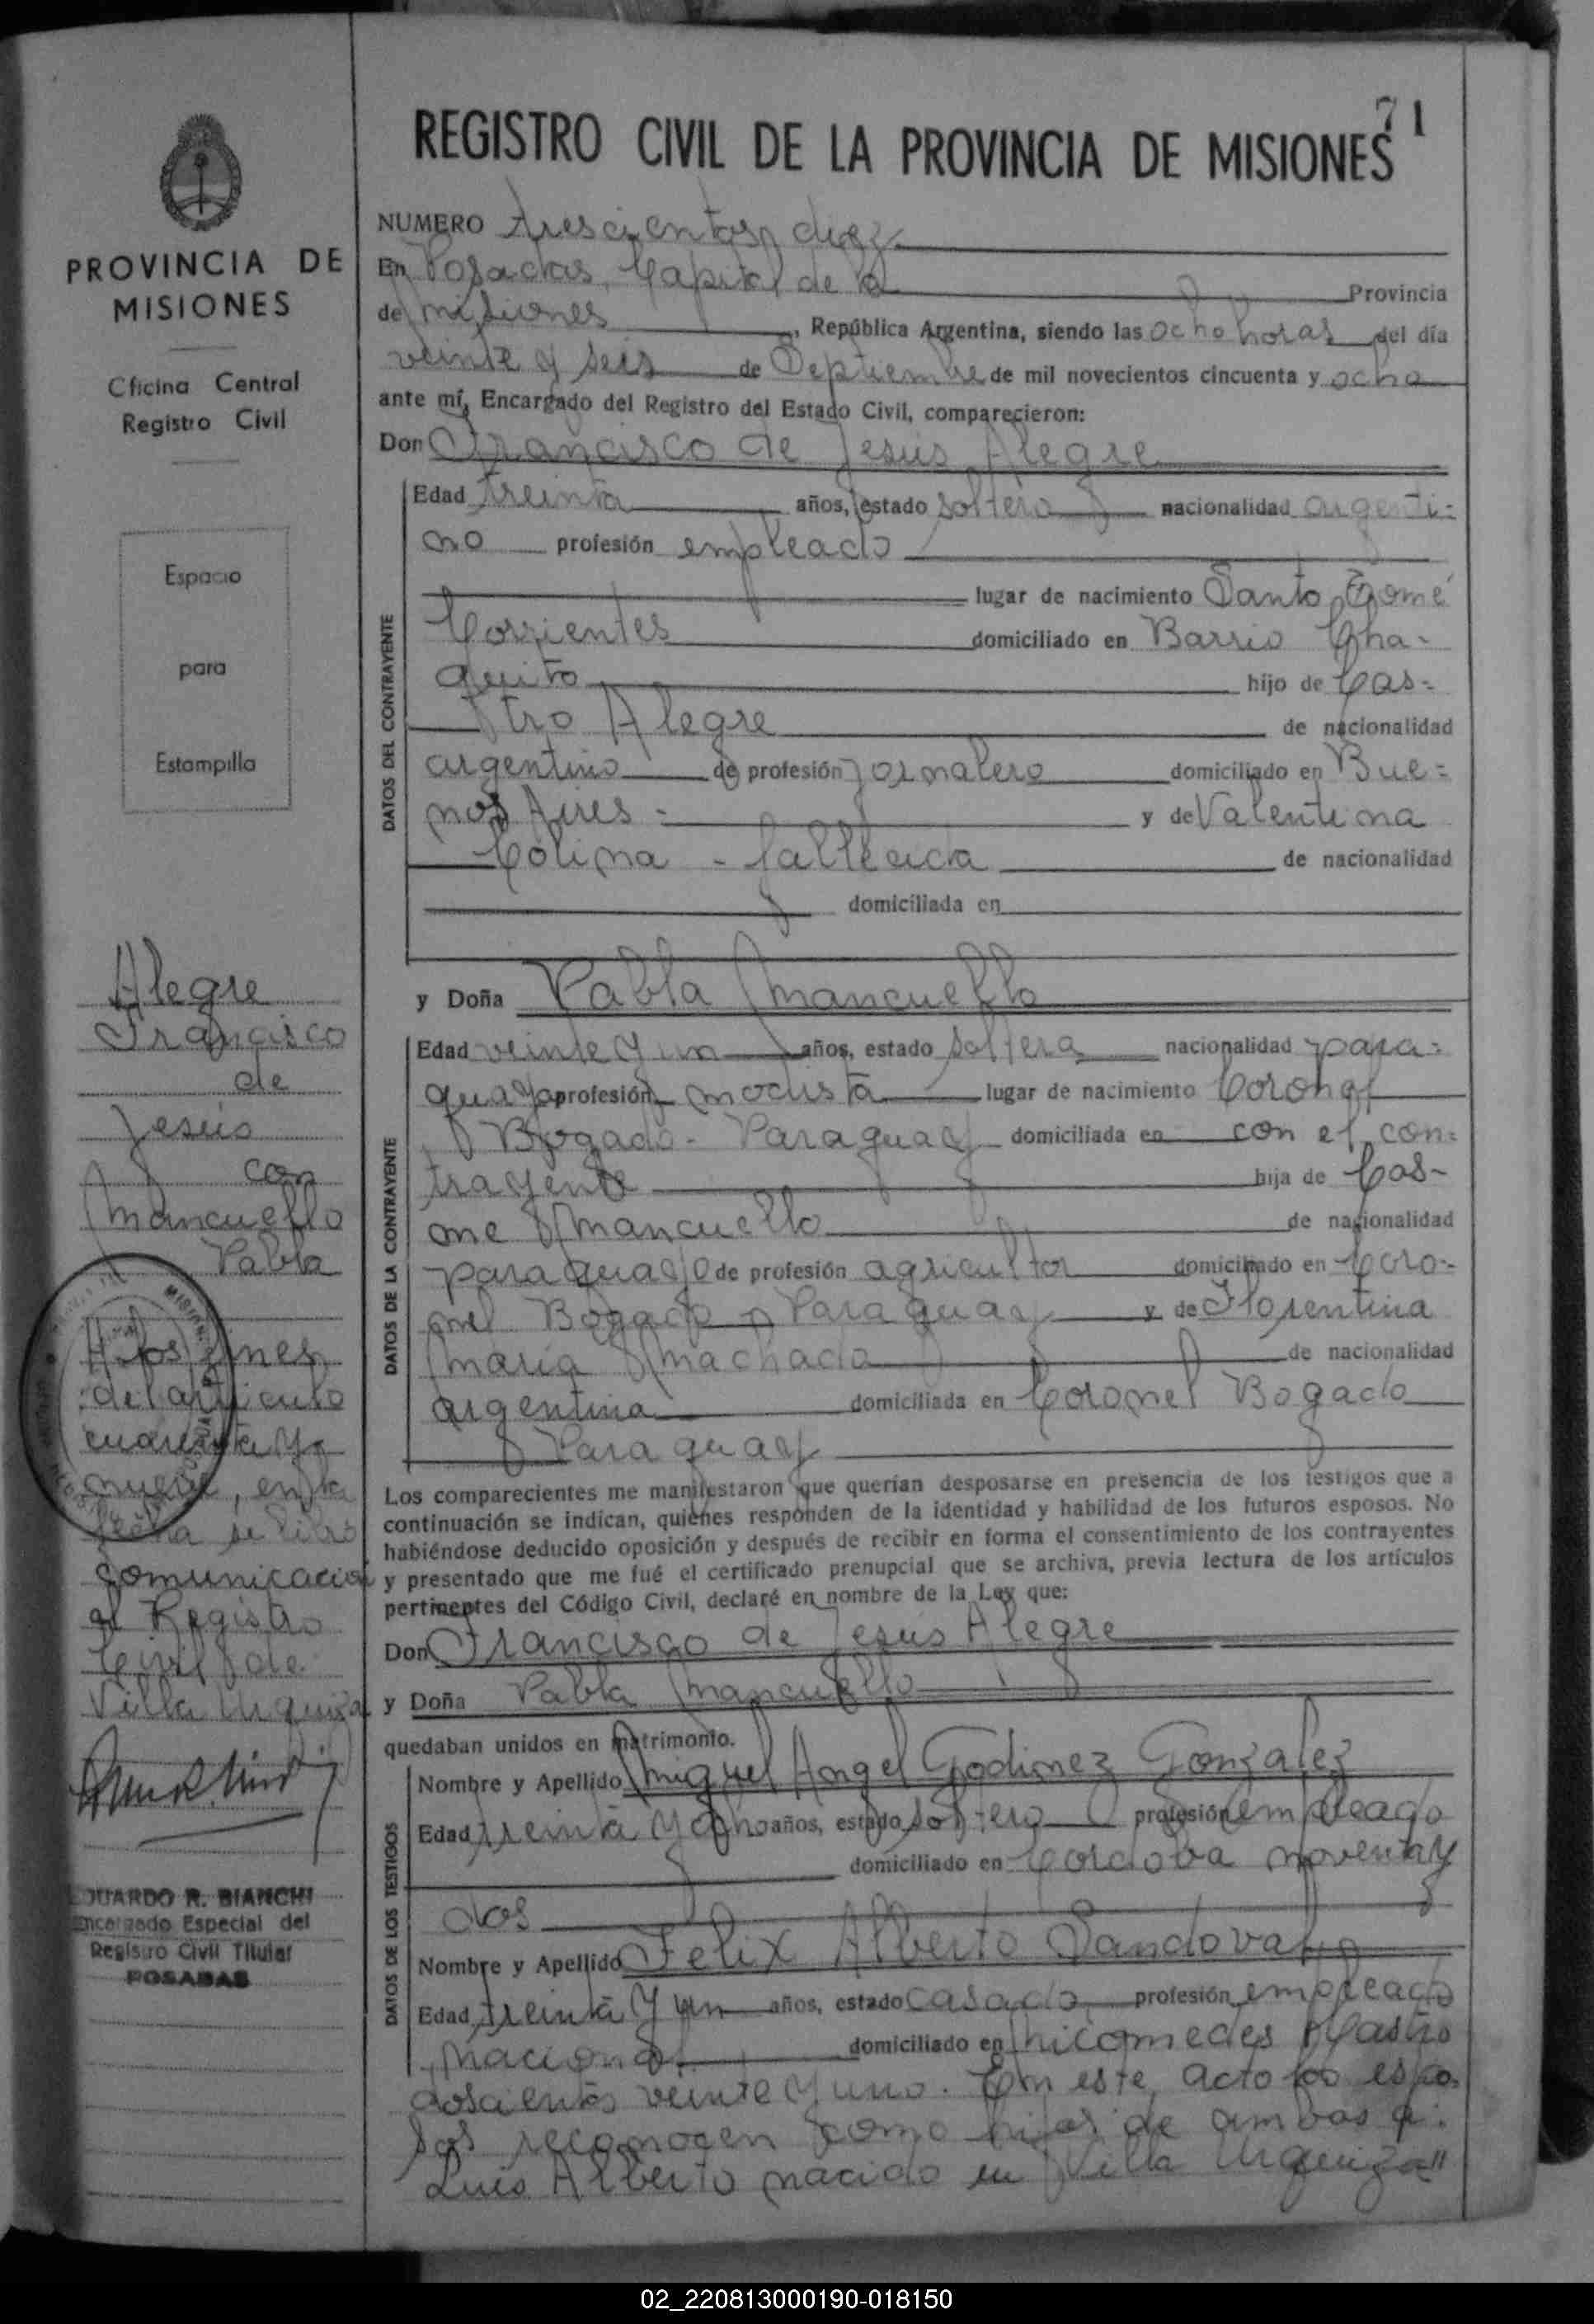 71
REGISTRO CIVIL DE LA PROVINCIA DE MISIONES
PROVINCIA DE
MISIONES
Oficina Central
Registro Civil
Espacio
para
Estampilla
Alegre
Francisco
de
Jesús
con
Mancuello
Pabla
A los fines
del articulo
cuarenta y
nueve, en la
fecha se libró
comunicacion
al Registro
Civil de
Villa Urquiza
EDUARDO R. BIANCHI
Encargado Especial del
Registro Civil Titular
POSADAS
NUMERO trescientos diez
En Posadas, Capital de la Provincia
de Misiones, República Argentina, siendo las ocho horas del día
veinte y seis de Septiembre de mil novecientos cincuenta y ocho
ante mí, Encargado del Registro del Estado Civil, comparecieron:
Don Francisco de Jesús Alegre
DATOS DEL CONTRAYENTE
Edad treinta años, estado soltero nacionalidad argenti=
no profesión empleado
lugar de nacimiento Santo Tomé
Corrientes domiciliado en Barrio Cha-
quito hijo de Cas=
tro Alegre de nacionalidad
argentino de profesión jornalero domiciliado en Bue=
nos Aires = y de Valentina
Colina - fallecida de nacionalidad
domiciliada en
y Doña Pabla Mancuello
DATOS DE LA CONTRAYENTE
Edad veinte y un años, estado soltera nacionalidad para=
guaya profesión modista lugar de nacimiento Coronel
Bogado - Paraguay domiciliada en con el con=
trayente hija de Cos-
me Mancuello de nacionalidad
paraguayo de profesión agricultor domiciliado en Coro-
nel Bogado Paraguay y de Florentina
María Machado de nacionalidad
argentina domiciliada en Coronel Bogado
Paraguay
Los comparecientes me manifestaron que querían desposarse en presencia de los testigos que a
continuación se indican, quienes responden de la identidad y habilidad de los futuros esposos. No
habiéndose deducido oposición y después de recibir en forma el consentimiento de los contrayentes
y presentado que me fué el certificado prenupcial que se archiva, previa lectura de los artículos
pertinentes del Código Civil, declaré en nombre de la Ley que:
Don Francisco de Jesús Alegre
y Doña Pabla Mancuello
quedaban unidos en matrimonio.
DATOS DE LOS TESTIGOS
Nombre y Apellido Miguel Angel Godinez Gonzalez
Edad treinta y ocho años, estado soltero profesión empleado
domiciliado en Cordoba noventa y
dos
Nombre y Apellido Felix Alberto Sandoval
Edad treinta y un años, estado casado profesión empleado
nacional domiciliado en Nicomedes Castro
doscientos veinte y uno. En este acto los espo
sos reconocen como hijos de ambos a:
Luis Alberto nacido en Villa Urquiza"
02_220813000190-018150